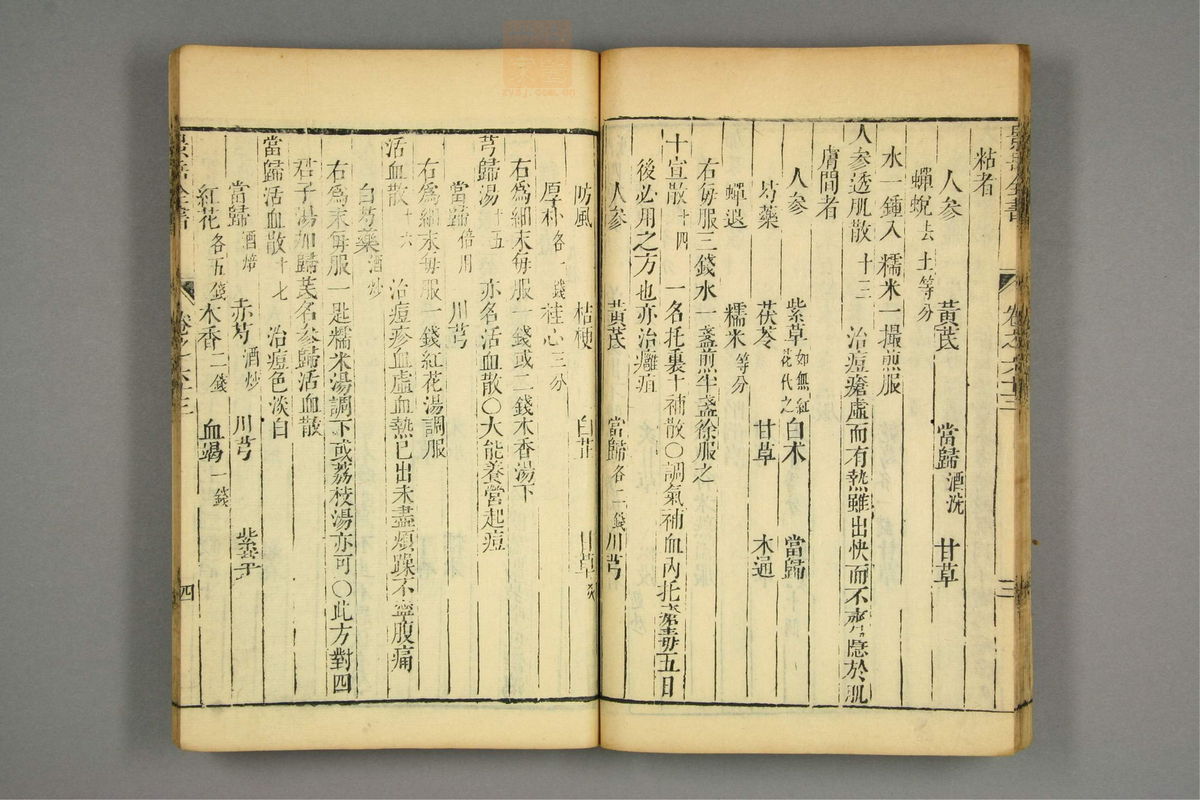 景岳全書 卷之六十三 三
粘者
人參 黃芪 當歸酒洗 甘草
蟬蛻去土等分
水一鍾入糯米一撮煎服
人參透肌散十三 治痘瘡虛而有熱雖出快而不齊隱於肌
膚間者
人參 紫草如無紅花代之 白术 當歸
芍藥 茯苓 甘草 木通
蟬退 糯米等分
右每服三錢水一盞煎半盞徐服之
十宣散十四 一名托裏十補散〇調氣補血內托瘡毒五日
後必用之方也亦治癰疽
人參 黃芪 當歸各二錢 川芎
防風 桔梗 白芷 甘草炙
厚朴各一錢 桂心三分
右爲細末每服一錢或二錢木香湯下
芎歸湯十五 亦名活血散〇大能養營起痘
當歸倍用 川芎
右爲細末每服一錢紅花湯調服
活血散十六 治痘疹血虛血熱已出未盡煩躁不寧腹痛
白芍藥酒炒
右爲末每服一匙糯米湯調下或荔枝湯亦可〇此方對四
君子湯加歸芪名參歸活血散
當歸活血散十七 治痘色淡白
當歸酒焙 赤芍酒炒 川芎 紫草
紅花各五錢 木香二錢 血竭一錢
景岳全書 卷之六十三 四